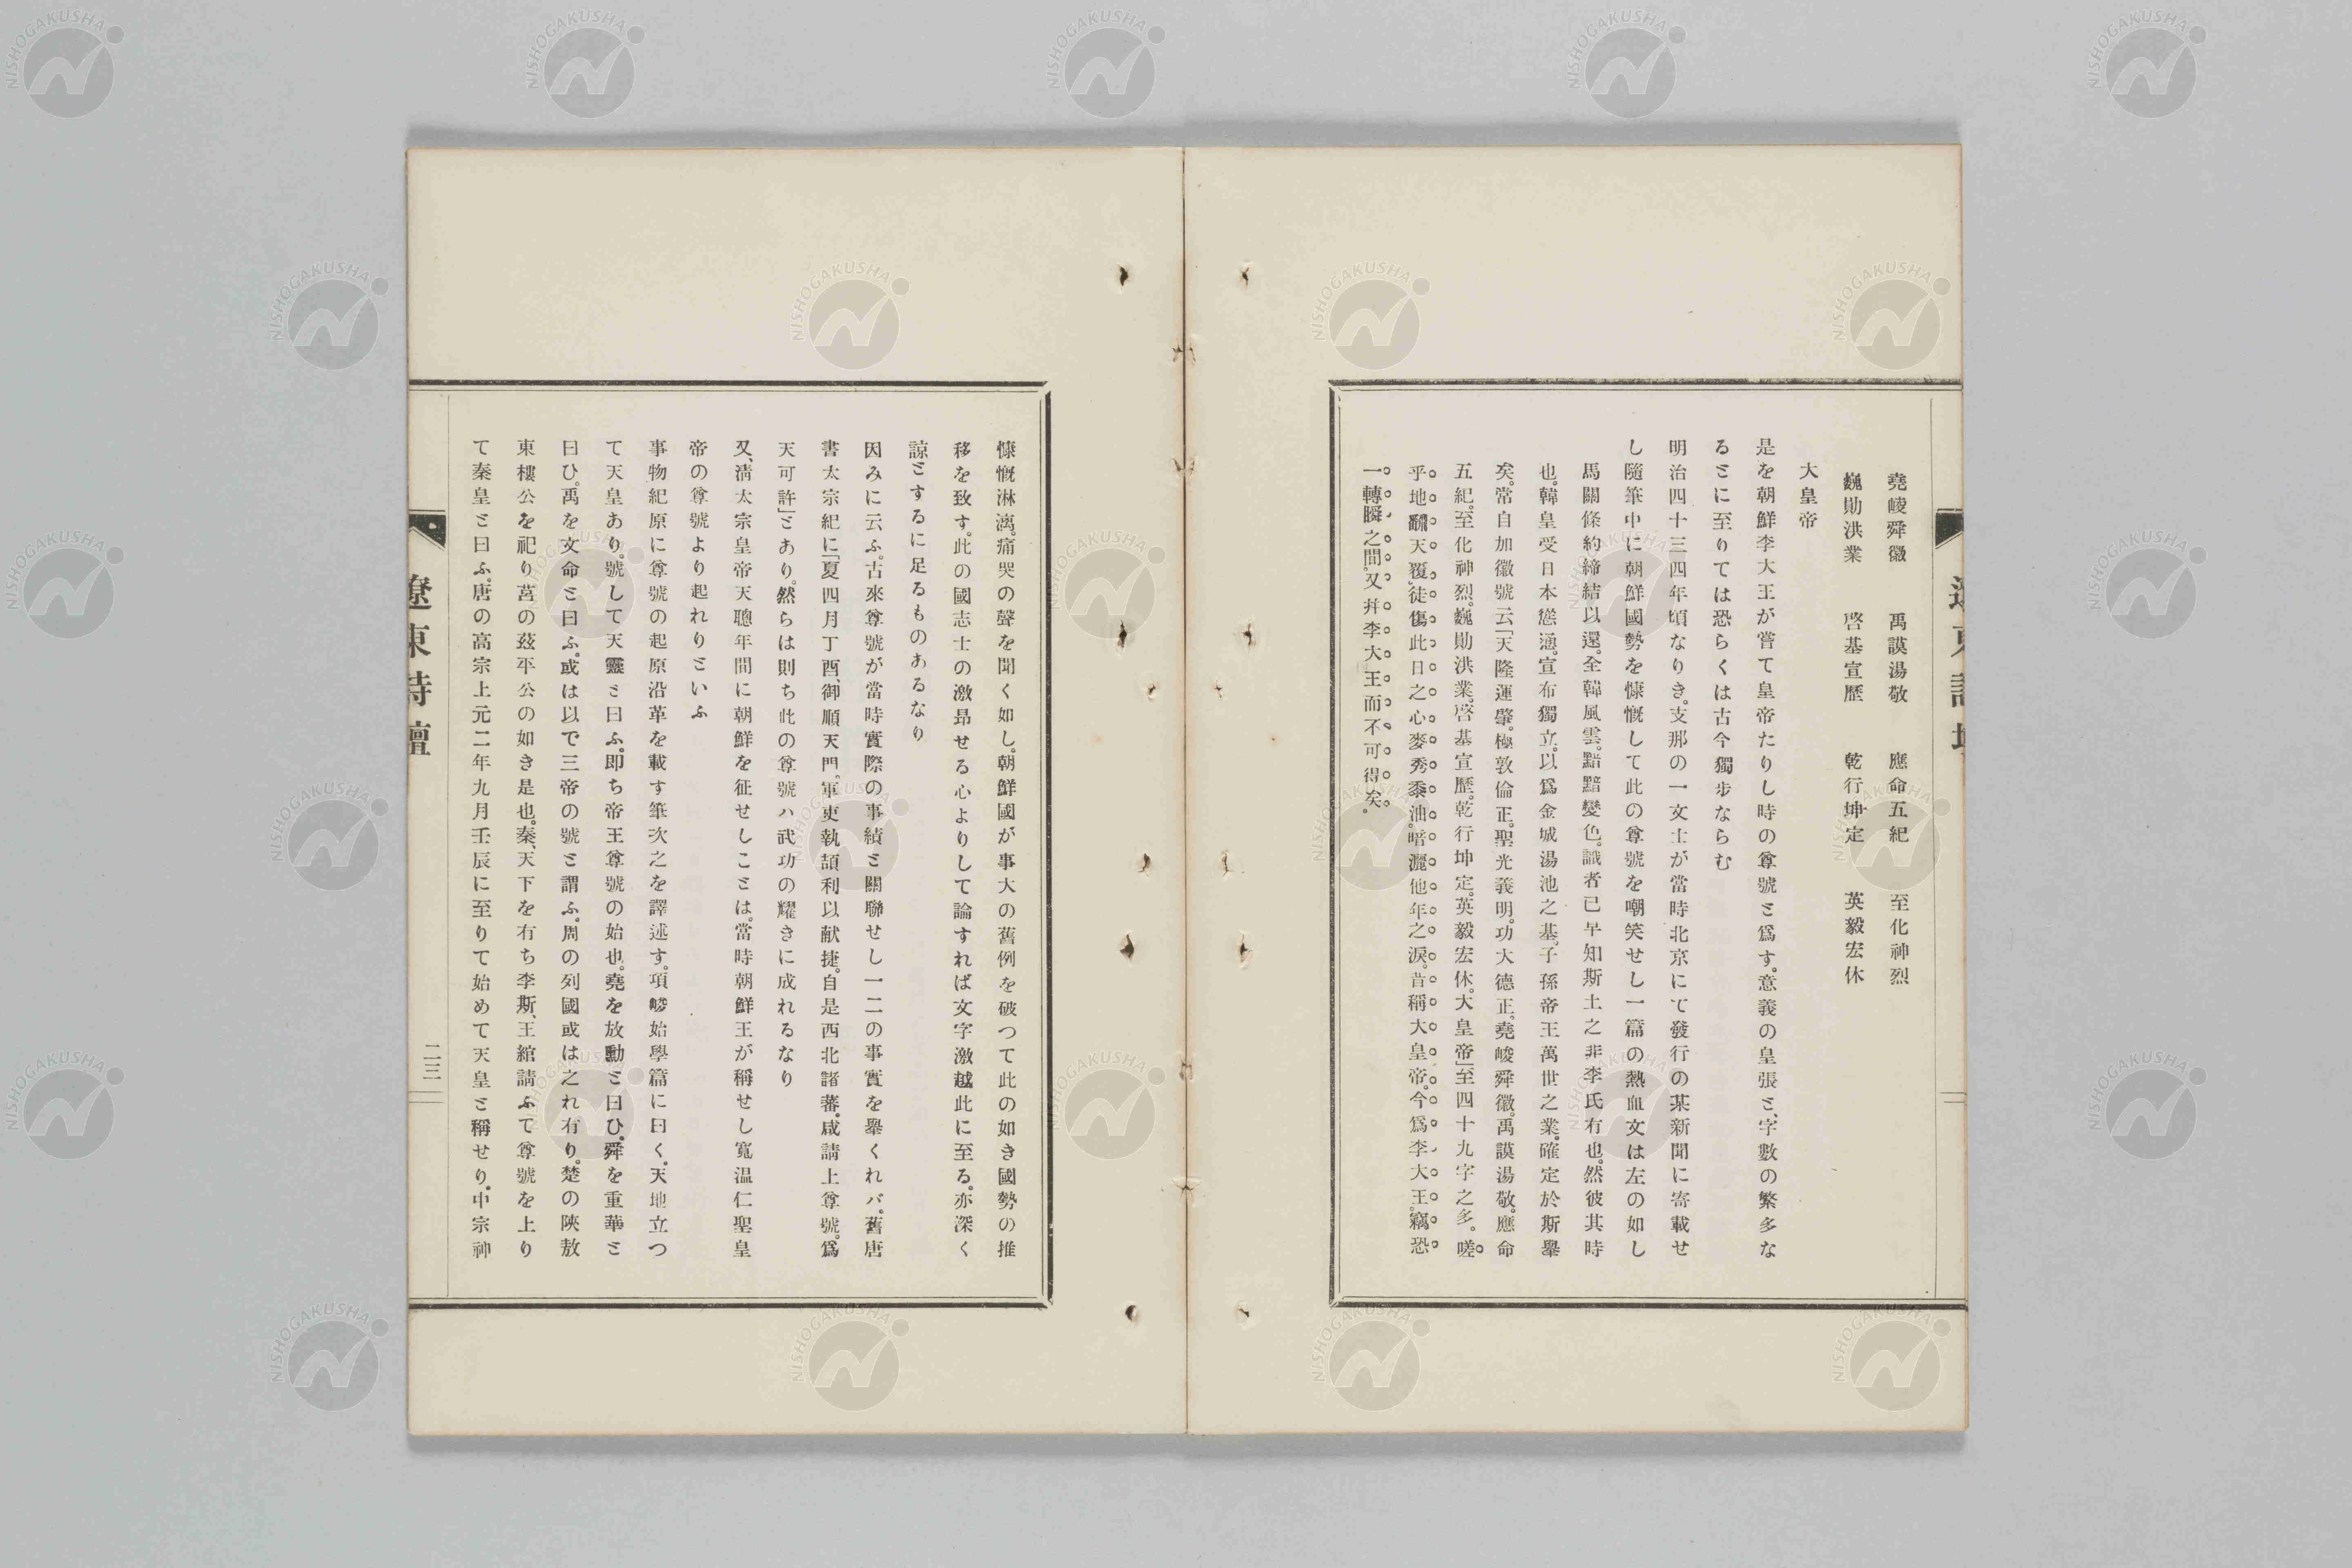 堯峻舜徽　禹謨湯敬　應命五紀　至化神烈
巍勛洪業　啓基宣歷　乾行坤定　英毅宏休
大皇帝
是を朝鮮李大王が嘗て皇帝たりし時の尊號と爲す。意義の皇張と、字數の繁多な
るとに至りては恐らくは古今獨步ならむ
明治四十三四年頃なりき。支那の一文士が當時北京にて發行の某新聞に寄載せ
し隨筆中に朝鮮國勢を慷慨して此の尊號を嘲笑せし一篇の熱血文は左の如し
馬關條約締結以還。全韓風雲。黯黯變色。識者已早知斯土之非李氏有也。然彼其時
也。韓皇受日本慫慂。宣布獨立。以爲金城湯池之基。子孫帝王萬世之業。確定於斯擧
矣。常自加徽號云「天隆運肇。極敦倫正。聖光義明。功大德正。堯峻舜徽。禹謨湯敬。應命
五紀。至化神烈。巍勛洪業。啓基宣歷。乾行坤定。英毅宏休。大皇帝」至四十九字之多。嗟
乎地翻天覆。徒傷此日之心。麥秀黍油。暗灑他年之淚。昔稱大皇帝。今爲李大王。竊恐
一轉瞬之間。又幷李大王而不可得矣。
慷慨淋漓。痛哭の聲を聞く如し。朝鮮國が事大の舊例を破つて此の如き國勢の推
移を致す。此の國志士の激昂せる心よりして論すれば文字激越此に至る。亦深く
諒とするに足るものあるなり
因みに云ふ。古來尊號が當時實際の事績と關聯せし一二の事實を擧くれバ。舊唐
書太宗紀に「夏四月丁酉、御順天門。軍吏執頡利以献捷。自是西北諸蕃。咸請上尊號。爲
天可許」とあり。然らは則ち此の尊號ハ武功の耀きに成れるなり
又、淸太宗皇帝天聰年間に朝鮮を征せしことは。當時朝鮮王が稱せし寬温仁聖皇
帝の尊號より起れりといふ
事物紀原に尊號の起原沿革を載す筆次之を譯述す。項峻始學篇に曰く。天地立つ
て天皇あり。號して天靈と曰ふ。即ち帝王尊號の始也。堯を放勳と曰ひ。舜を重華と
曰ひ。禹を文命と曰ふ。或は以て三帝の號と謂ふ。周の列國或は之れ有り。楚の陝敖
東樓公を祀り莒の玆平公の如き是也。秦、天下を有ち李斯、王綰請ふて尊號を上り
て秦皇と曰ふ。唐の高宗上元二年九月壬辰に至りて始めて天皇と稱せり。中宗神
遼東詩壇
二三